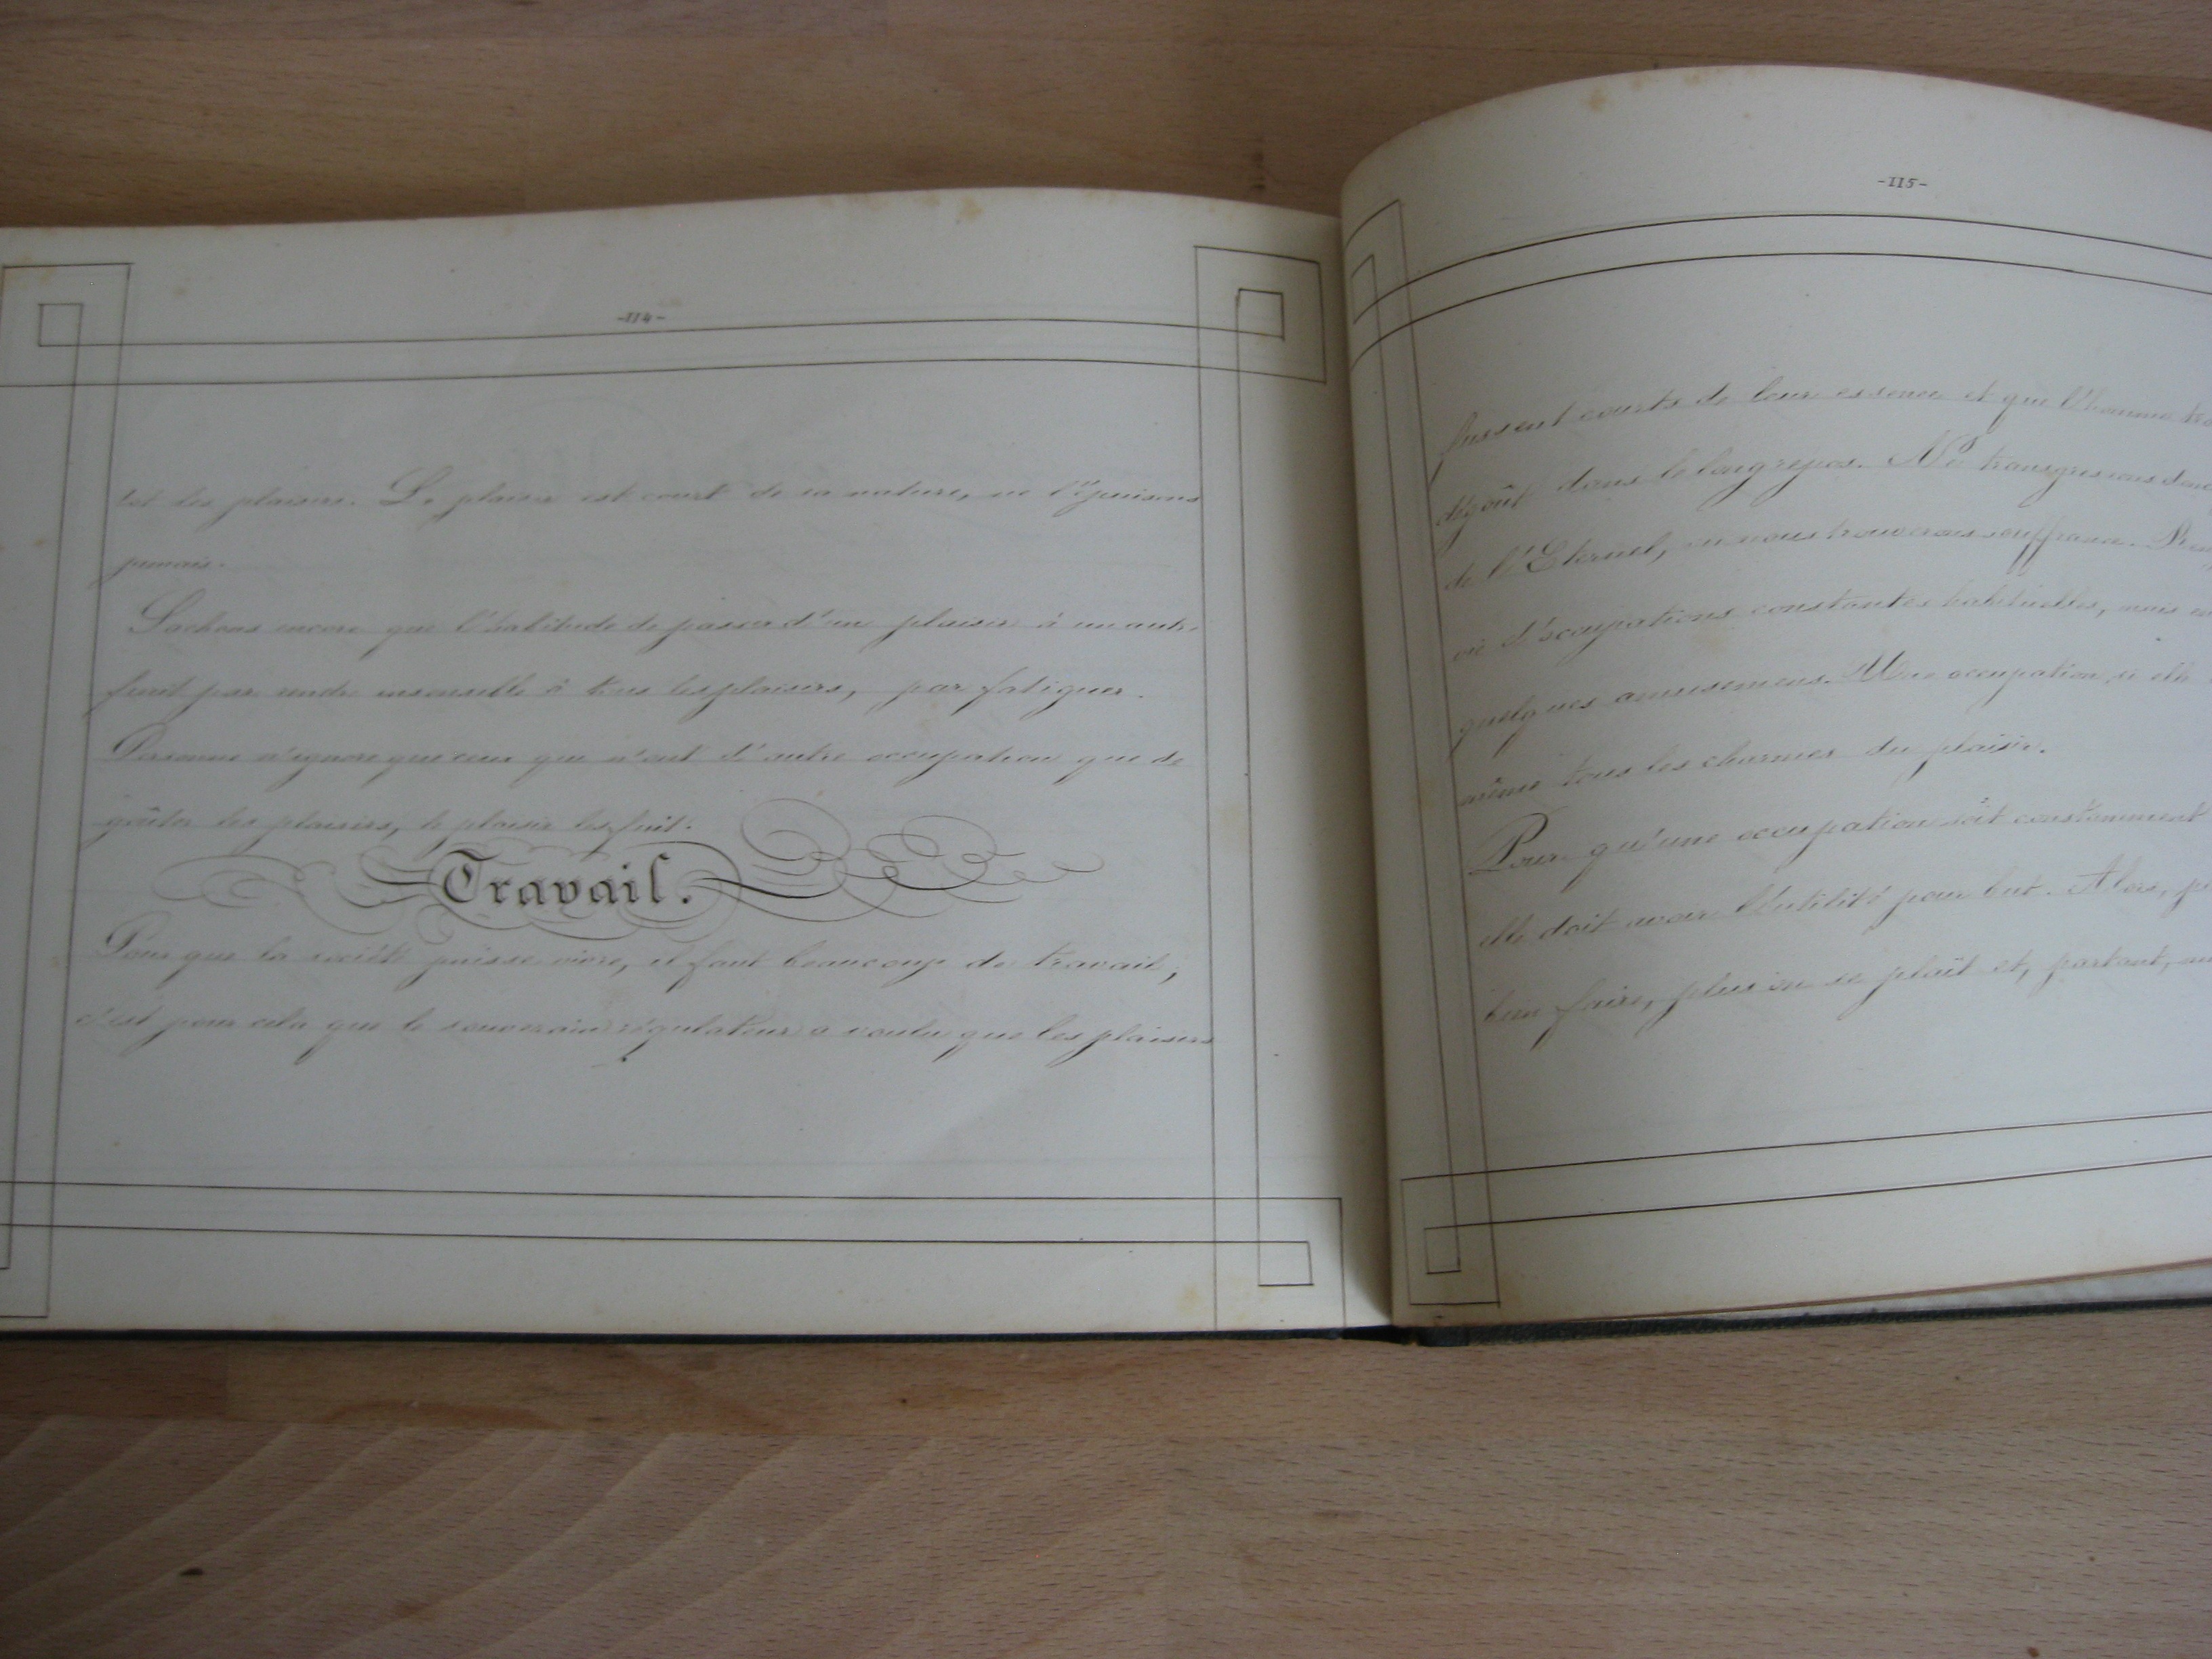 -114-
les plaisirs. Le plaisir est court de sa nature, ne l'épuisons
jamais.
Sachons encore que l'habitude de passer d'un plaisir à un autre
finit par rendre insensible à tous les plaisirs, par fatiguer.
Personne n'ignore que ceux qui n'ont d'autre occupation que de
goûter les plaisirs, le plaisir les fuit.
Travail.
Pour que la société puisse vivre, il faut beaucoup de travail;
c'est pour cela que le souverain régulateur a voulu que les plaisirs
-115-
fussent courts de leur essence et que l'homme
dégoût dans le long repos. Ne transgressons donc
de l'Eternel, ou nous trouverons souffrance.
vie d'occupations constantes habituelles, mais
quelques amusemens. Une occupation, si elle
même tous les charmes du plaisir.
Pour qu'une occupation soit constamment
elle doit avoir l'utilité pour but. Alors,
bien faire, plus on se plaît et, partant,